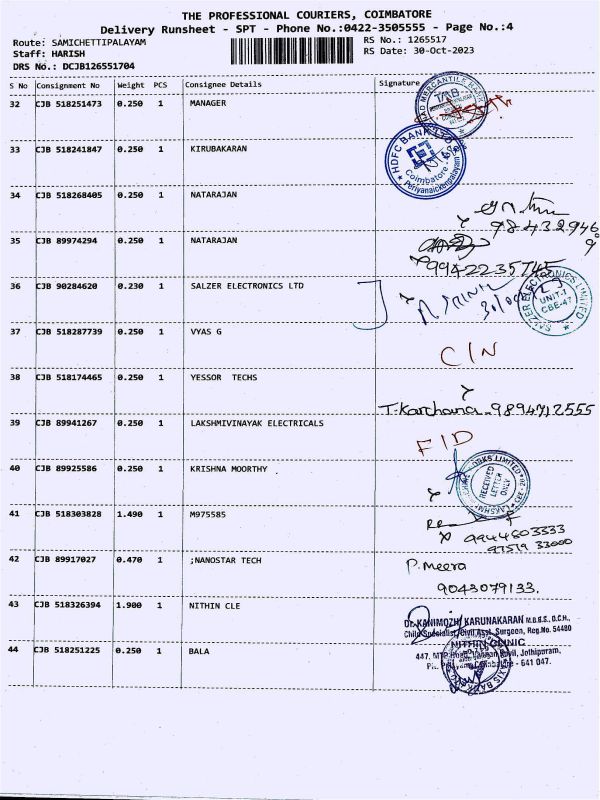 THE PROFESSIONAL COURIERS, COIMBATORE
Delivery Runsheet - SPT - Phone No.:0422-3505555 - Page No.:4
Route: SAMICHETTIPALAYAM
RS No.: 1265517
Staff: HARISH
RS Date: 30-Oct-2023
DRS No.: DCJB126551704
S No Consignment No Weight PCS Consignee Details Signature
32 CJB 518251473 0.250 1 MANAGER
TMB
33 CJB 518241847 0.250 1 KIRUBAKARAN
HDFC BANK LTD
Coimbatore
Periyanaickenpalayam
34 CJB 518268405 0.250 1 NATARAJAN
35 CJB 89974294 0.250 1 NATARAJAN
9942235745
36 CJB 90284620 0.230 1 SALZER ELECTRONICS LTD
SALZER ELECTRONICS LIMITED
UNIT-1
CBE-47
37 CJB 518287739 0.250 1 VYAS G
C/N
38 CJB 518174465 0.250 1 YESSOR TECHS
T.Karchana-9894712555
39 CJB 89941267 0.250 1 LAKSHMIVINAYAK ELECTRICALS
F/D
40 CJB 89925586 0.250 1 KRISHNA MOORTHY
RECEIVED
LETTER
ONLY
41 CJB 518303828 1.490 1 M975585
9944603333
97519 33000
42 CJB 89917027 0.470 1 ;NANOSTAR TECH
P.Meera
9043079133.
43 CJB 518326394 1.900 1 NITHIN CLE
Dr. KANIMOZHI KARUNAKARAN M.B.B.S., D.C.H.,
Child Specialist, Civil Asst. Surgeon, Reg.No. 54480
NITHIN CLINIC
44 CJB 518251225 0.250 1 BALA
447, MTP Road, Jothipuram,
Coimbatore - 641 047.